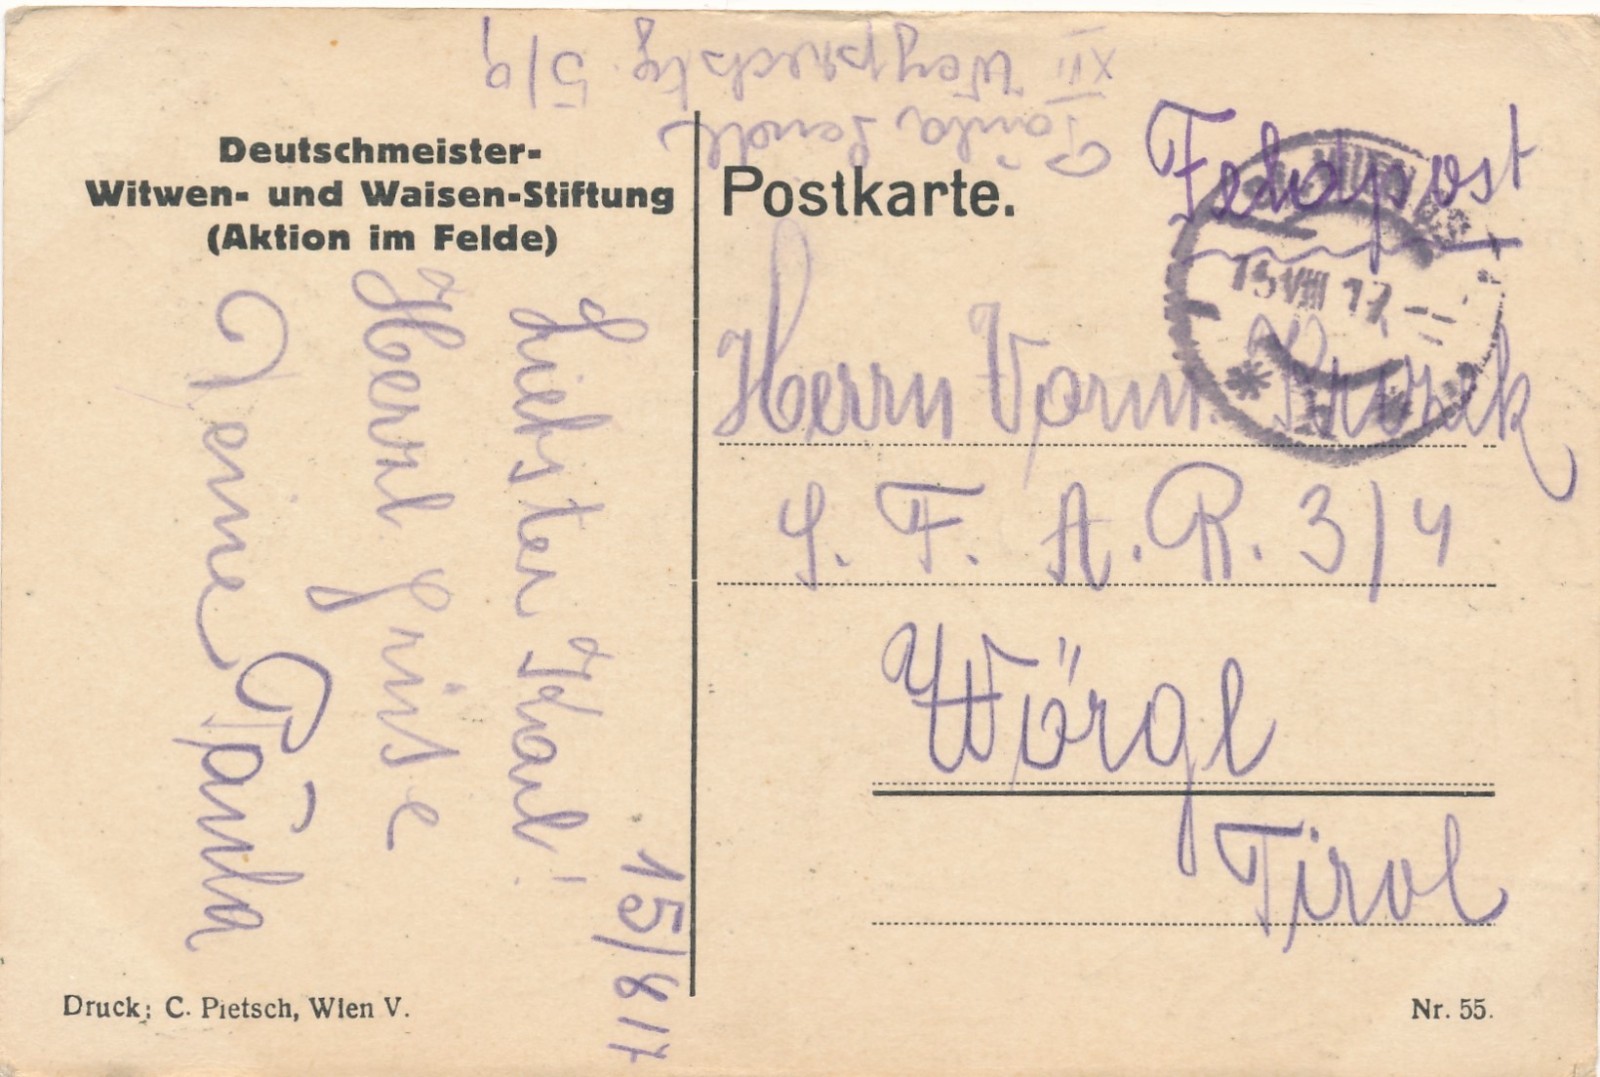 Paula
XIII Weyprechtg. 5/9
Deutschmeister-
Witwen- und Waisen-Stiftung
(Aktion im Felde)
Postkarte.
Feldpost
WIEN
15 VIII 17
Herrn Vorm.
S. F. A. R. 3/4
Wörgl
Tirol
15/8 17
Liebster Karl!
Herzl Grüße
Deine Paula
Druck: C. Pietsch, Wien V.
Nr. 55.